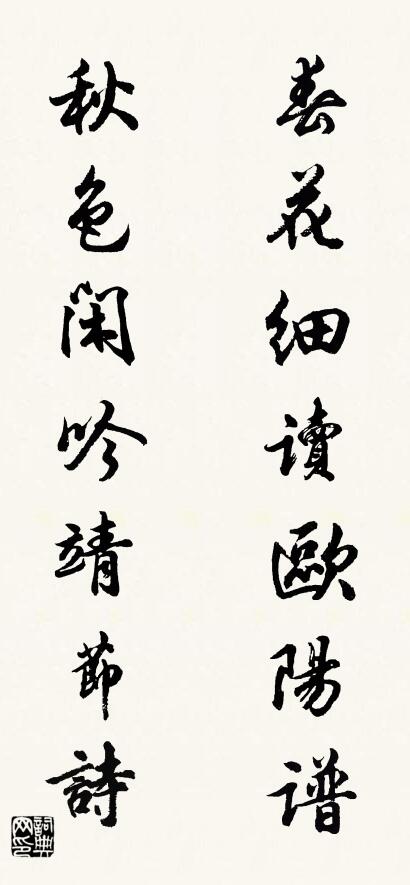 春花细讀歐陽谱
秋色闲吟靖節詩
詞典网印